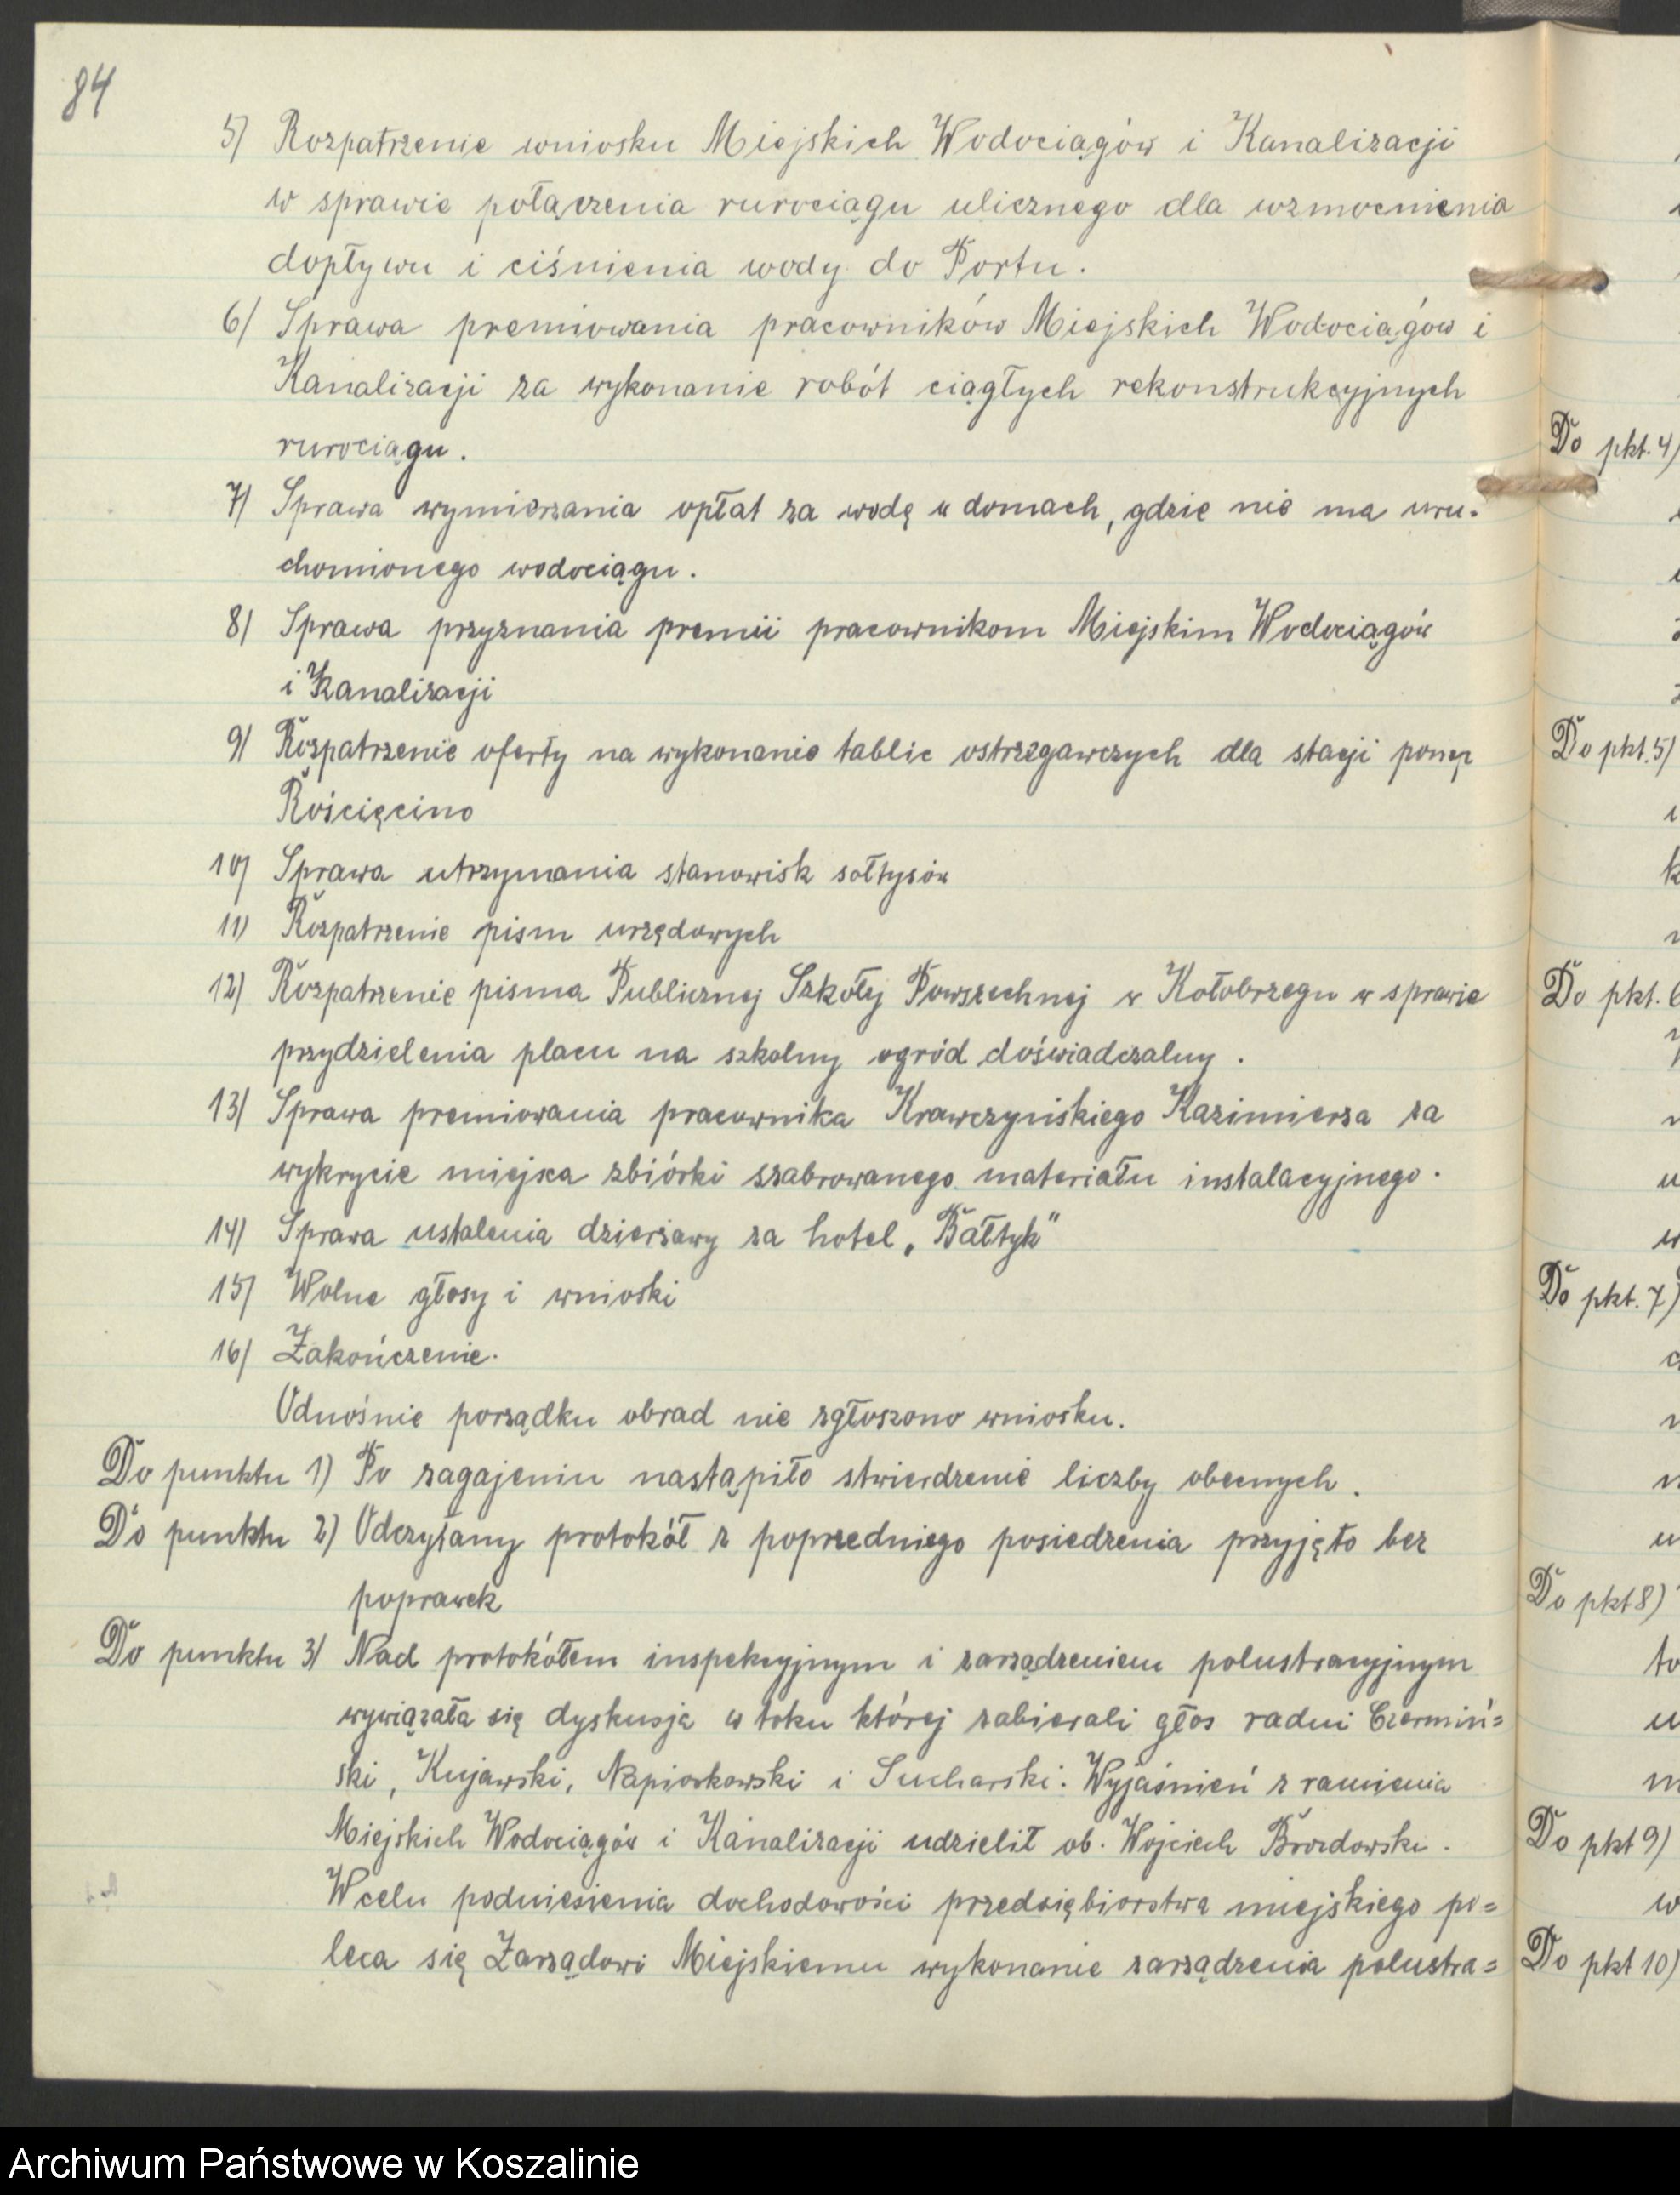 84
5) Rozpatrzenie wniosku Miejskich Wodociągów i Kanalizacji
w sprawie połączenia rurociągu ulicznego dla wzmocnienia
dopływu i ciśnienia wody do Portu.
6) Sprawa premiowania pracowników Miejskich Wodociągów i
Kanalizacji za wykonanie robót ciągłych rekonstrukcyjnych
rurociągu.
7) Sprawa wymierzania opłat za wodę w domach, gdzie nie ma uru-
chomionego wodociągu.
8) Sprawa przyznania premii pracownikom Miejskim Wodociągów
i Kanalizacji
9) Rozpatrzenie oferty na wykonanie tablic ostrzegawczych dla stacji pomp
Rościęcino
10) Sprawa utrzymania stanowisk sołtysów
11) Rozpatrzenie pism urzędowych
12) Rozpatrzenie pisma Publicznej Szkoły Powszechnej w Kołobrzegu w sprawie
przydzielenia placu na szkolny ogród doświadczalny.
13) Sprawa premiowania pracownika Krawczyńskiego Kazimierza za
wykrycie miejsca zbiórki szabrowanego materiału instalacyjnego.
14) Sprawa ustalenia dzierżawy za hotel „Bałtyk"
15) Wolne głosy i wnioski
16) Zakończenie.
Odnośnie porządku obrad nie zgłoszono wniosku.
Do punktu 1) Po zagajeniu nastąpiło stwierdzenie liczby obecnych.
Do punktu 2) Odczytany protokół z poprzedniego posiedzenia przyjęto bez
poprawek
Do punktu 3) Nad protokółem inspekcyjnym i zarządzeniem polustracyjnym
wywiązała się dyskusja w toku której zabierali głos radni Czermiń=
ski, Kujawski, Napiorkowski i Sucharski. Wyjaśnień z ramienia
Miejskich Wodociągów i Kanalizacji udzielił ob. Wojciech Brozdowski.
W celu podniesienia dochodowości przedsiębiorstwa miejskiego po=
leca się Zarządowi Miejskiemu wykonanie zarządzenia polustra=
Do pkt. 4)
Do pkt. 5)
Do pkt. 6
Do pkt. 7)
Do pkt 8)
Do pkt 9)
Do pkt 10)
Archiwum Państwowe w Koszalinie